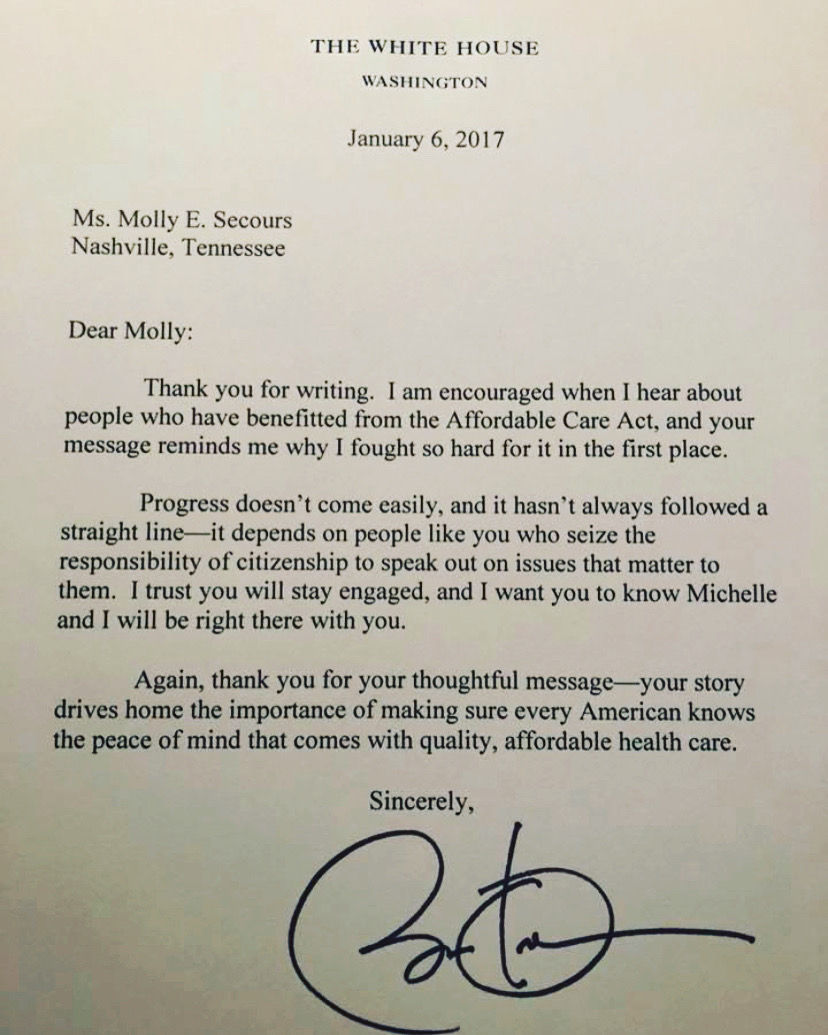 THE WHITE HOUSE
WASHINGTON
January 6, 2017
Ms. Molly E. Secours
Nashville, Tennessee
Dear Molly:
Thank you for writing.  I am encouraged when I hear about
people who have benefitted from the Affordable Care Act, and your
message reminds me why I fought so hard for it in the first place.
Progress doesn’t come easily, and it hasn’t always followed a
straight line—it depends on people like you who seize the
responsibility of citizenship to speak out on issues that matter to
them.  I trust you will stay engaged, and I want you to know Michelle
and I will be right there with you.
Again, thank you for your thoughtful message—your story
drives home the importance of making sure every American knows
the peace of mind that comes with quality, affordable health care.
Sincerely,